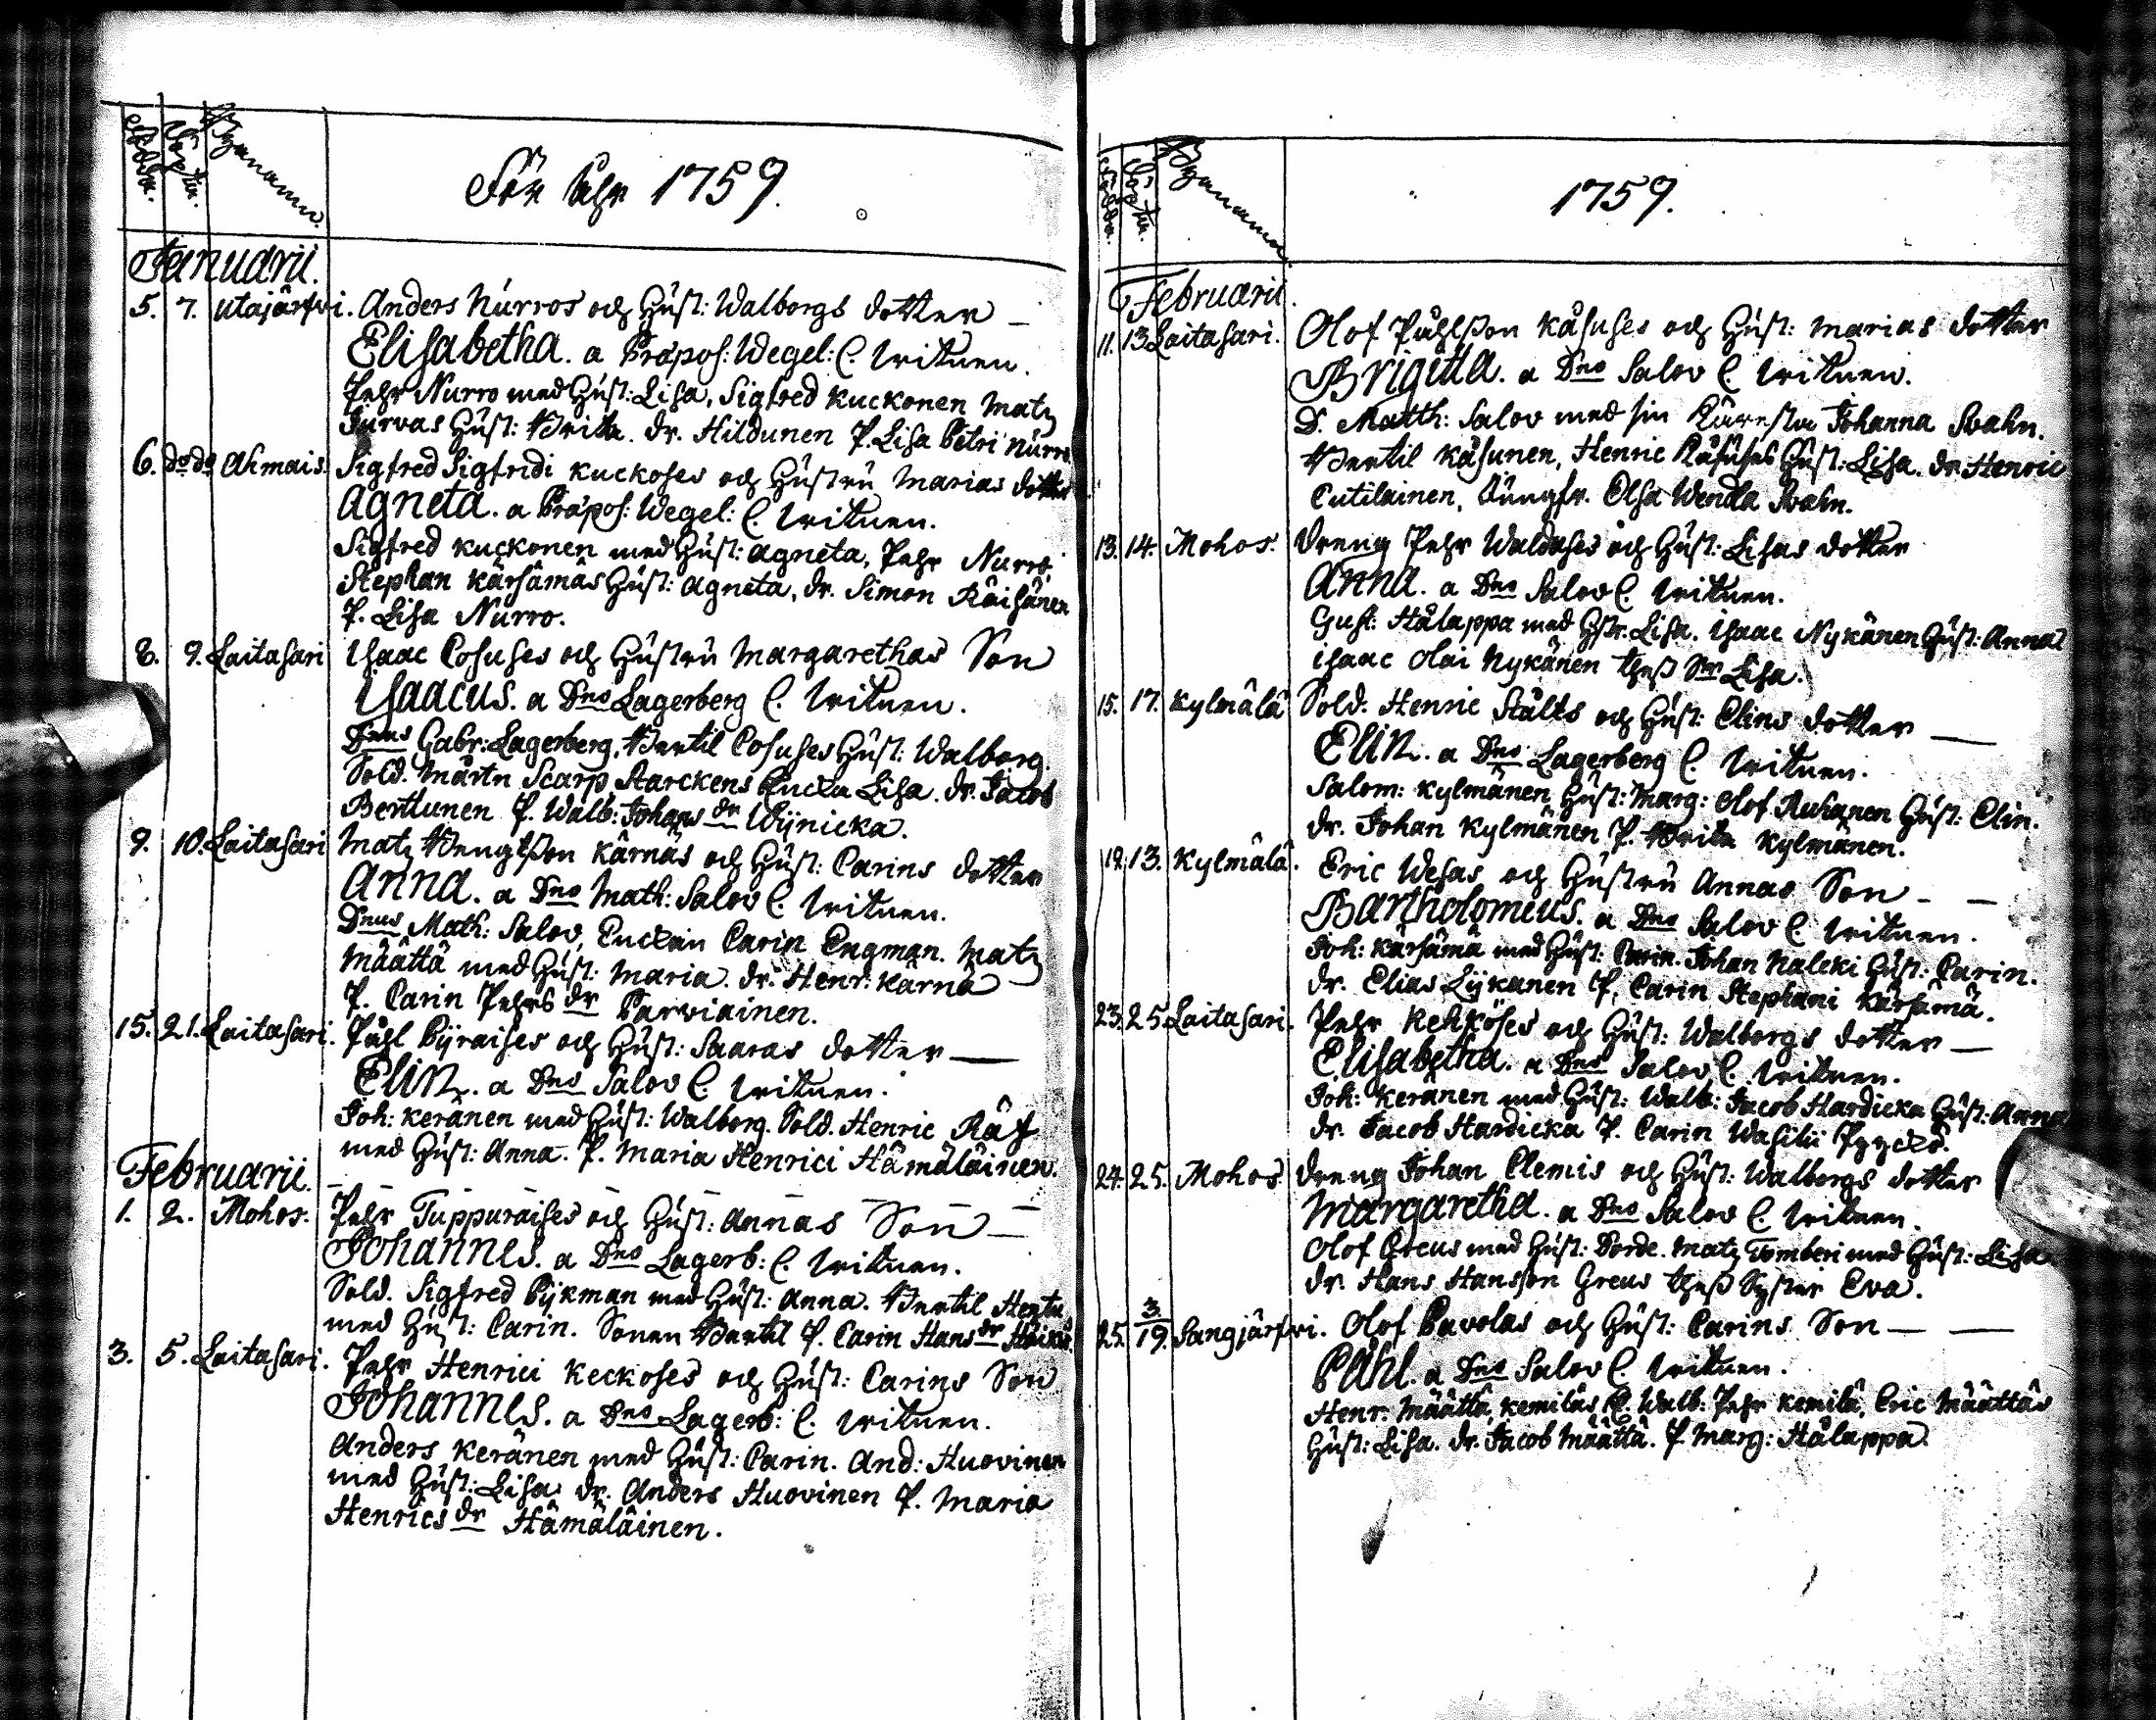 Födda. Döptu. Bynamn.
För Åhr 1759.
Januarii.
5. 7. Utajärfvi. Anders Nurros och Hust: Walborgs dotter –
Elisabetha. a Præpos: Wegel: C. Witnen.
Pehr Nurro med Hust: Lisa, Sigfred Kuckonen Matz
Jurvas Hust: Brita. dr. Hildunen P. Lisa Petri Nurro.
6. do do Ahmais. Sigfred Sigfridi Kuckoses och Hustru Marias dotter
Agneta. a Præpos: Wegel: C. Witnen.
Sigfred Kuckonen med Hust: Agneta, Pehr Nurro,
Stephan Kärsämäs Hust: Agneta, dr. Simon Räisänen
P. Lisa Nurro.
8. 9. Laitasari Isaac Cosuses och Hustru Margarethas Son
Isaacus. a Dno Lagerberg C. Witnen.
Dnus Gabr: Lagerberg, Bertil Cosuses Hust: Walborg.
Sold. Mårtn Scarp Starckens Encka Lisa. dr. Jacob
Benttunen P. Walb: Johans dr Wijnicka.
9. 10. Laitasari Matz Bengtsson Kärnäs och Hust: Carins dotter
Anna. a Dno Math: Salov C. Witnen.
Dnus Math: Salov, Enckan Carin Engman. Matz
Määttä med Hust: Maria. dr. Henr: Kärnä
P. Carin Pehrs dr Parviainen.
15. 21. Laitasari. Påhl Pyraises och Hust: Saaras dotter —
Elin. a Dno Salov C. Witnen.
Joh: Keränen med Hust: Walborg. Sold. Henric Räf
med Hust: Anna. P. Maria Henrici Hämäläinen.
Februarii.
1. 2. Mohos. Pehr Tuppuraises och Hust: Annas Son —
Johannes. a Dno Lagerb: C. Witnen.
Sold. Sigfred Pijkman med Hust: Anna. Bertil Hentu
med Hust: Carin. Sonen Bertil P. Carin Hans dr
3. 5. Laitasari. Pehr Henrici Keckoses och Hust: Carins Son
Johannes. a Dno Lagerb: C. Witnen.
Anders Keränen med Hust: Carin. And: Huovinen
med Hust: Lisa dr. Anders Huovinen P. Maria
Henrics dr Hämäläinen.
Födda. Döptu. Bynamn.
1759.
Februarii.
11. 13. Laitasari. Olof Påhlsson Käsuses och Hust: Marias dotter
Brigitta. a Dno Salov C. Witnen.
D. Matth: Salov med sin Käresta Johanna Svahn.
Bertil Käsunen, Henric Räsuses Hust: Lisa. dr Henric
Cutilainen, Jungfr. Elsa Wendla Svahn.
13. 14. Mohos. Dreng Pehr Waldases och Hust: Lisas dotter
Anna. a Dno Salov C. Witnen.
Gust: Hålappa med Hstr. Lisa. Isaac Nykänen Hust: Anna
Isaac Olai Nykänen thess Sr Lisa.
15. 17. Kylmälä Sold. Henric Stålts och Hust: Elins dotter —
Elin. a Dno Lagerberg C. Witnen.
Salom: Kylmänen, Hust: Marg: Olof Ruhanen Hust: Elin.
dr. Johan Kylmänen P. Brita Kylmänen.
12. 13. Kylmälä. Eric Wesas och Hustru Annas Son – –
Bartholomeus. a Dno Salov C. Witnen.
Joh: Kärsämä med Hust: Carin. Johan Naleki Hust: Carin.
dr. Elias Lijkanen P. Carin Stephani Kärsämä.
23. 25. Laitasari. Pehr Kehköses och Hust: Walborgs dotter —
Elisabetha. a Dno Salov C. Witnen.
Joh: Keränen med Hust: Walb: Jacob Hardicka Hust: Anna
dr. Jacob Hardicka P. Carin Wasilii
24. 25. Mohos. Dreng Johan Clemis och Hust: Walborgs dotter
Margaretha. a Dno Salov C. Witnen.
Olof Greus med Hust: Dorde. Matz Tomberi med Hust: Lisa
dr. Hans Hansson Greus thess Syster Eva.
25. 3/19. Sangjärfvi. Olof Pavolas och Hust: Carins Son — —
Påhl. a Dno Salov C. Witnen.
Henr: Määttä, Kemiläs P. Walb: Pehr Kemilä, Eric Määttäs
Hust: Lisa. dr. Jacob Määttä. P. Marg: Hålappa.